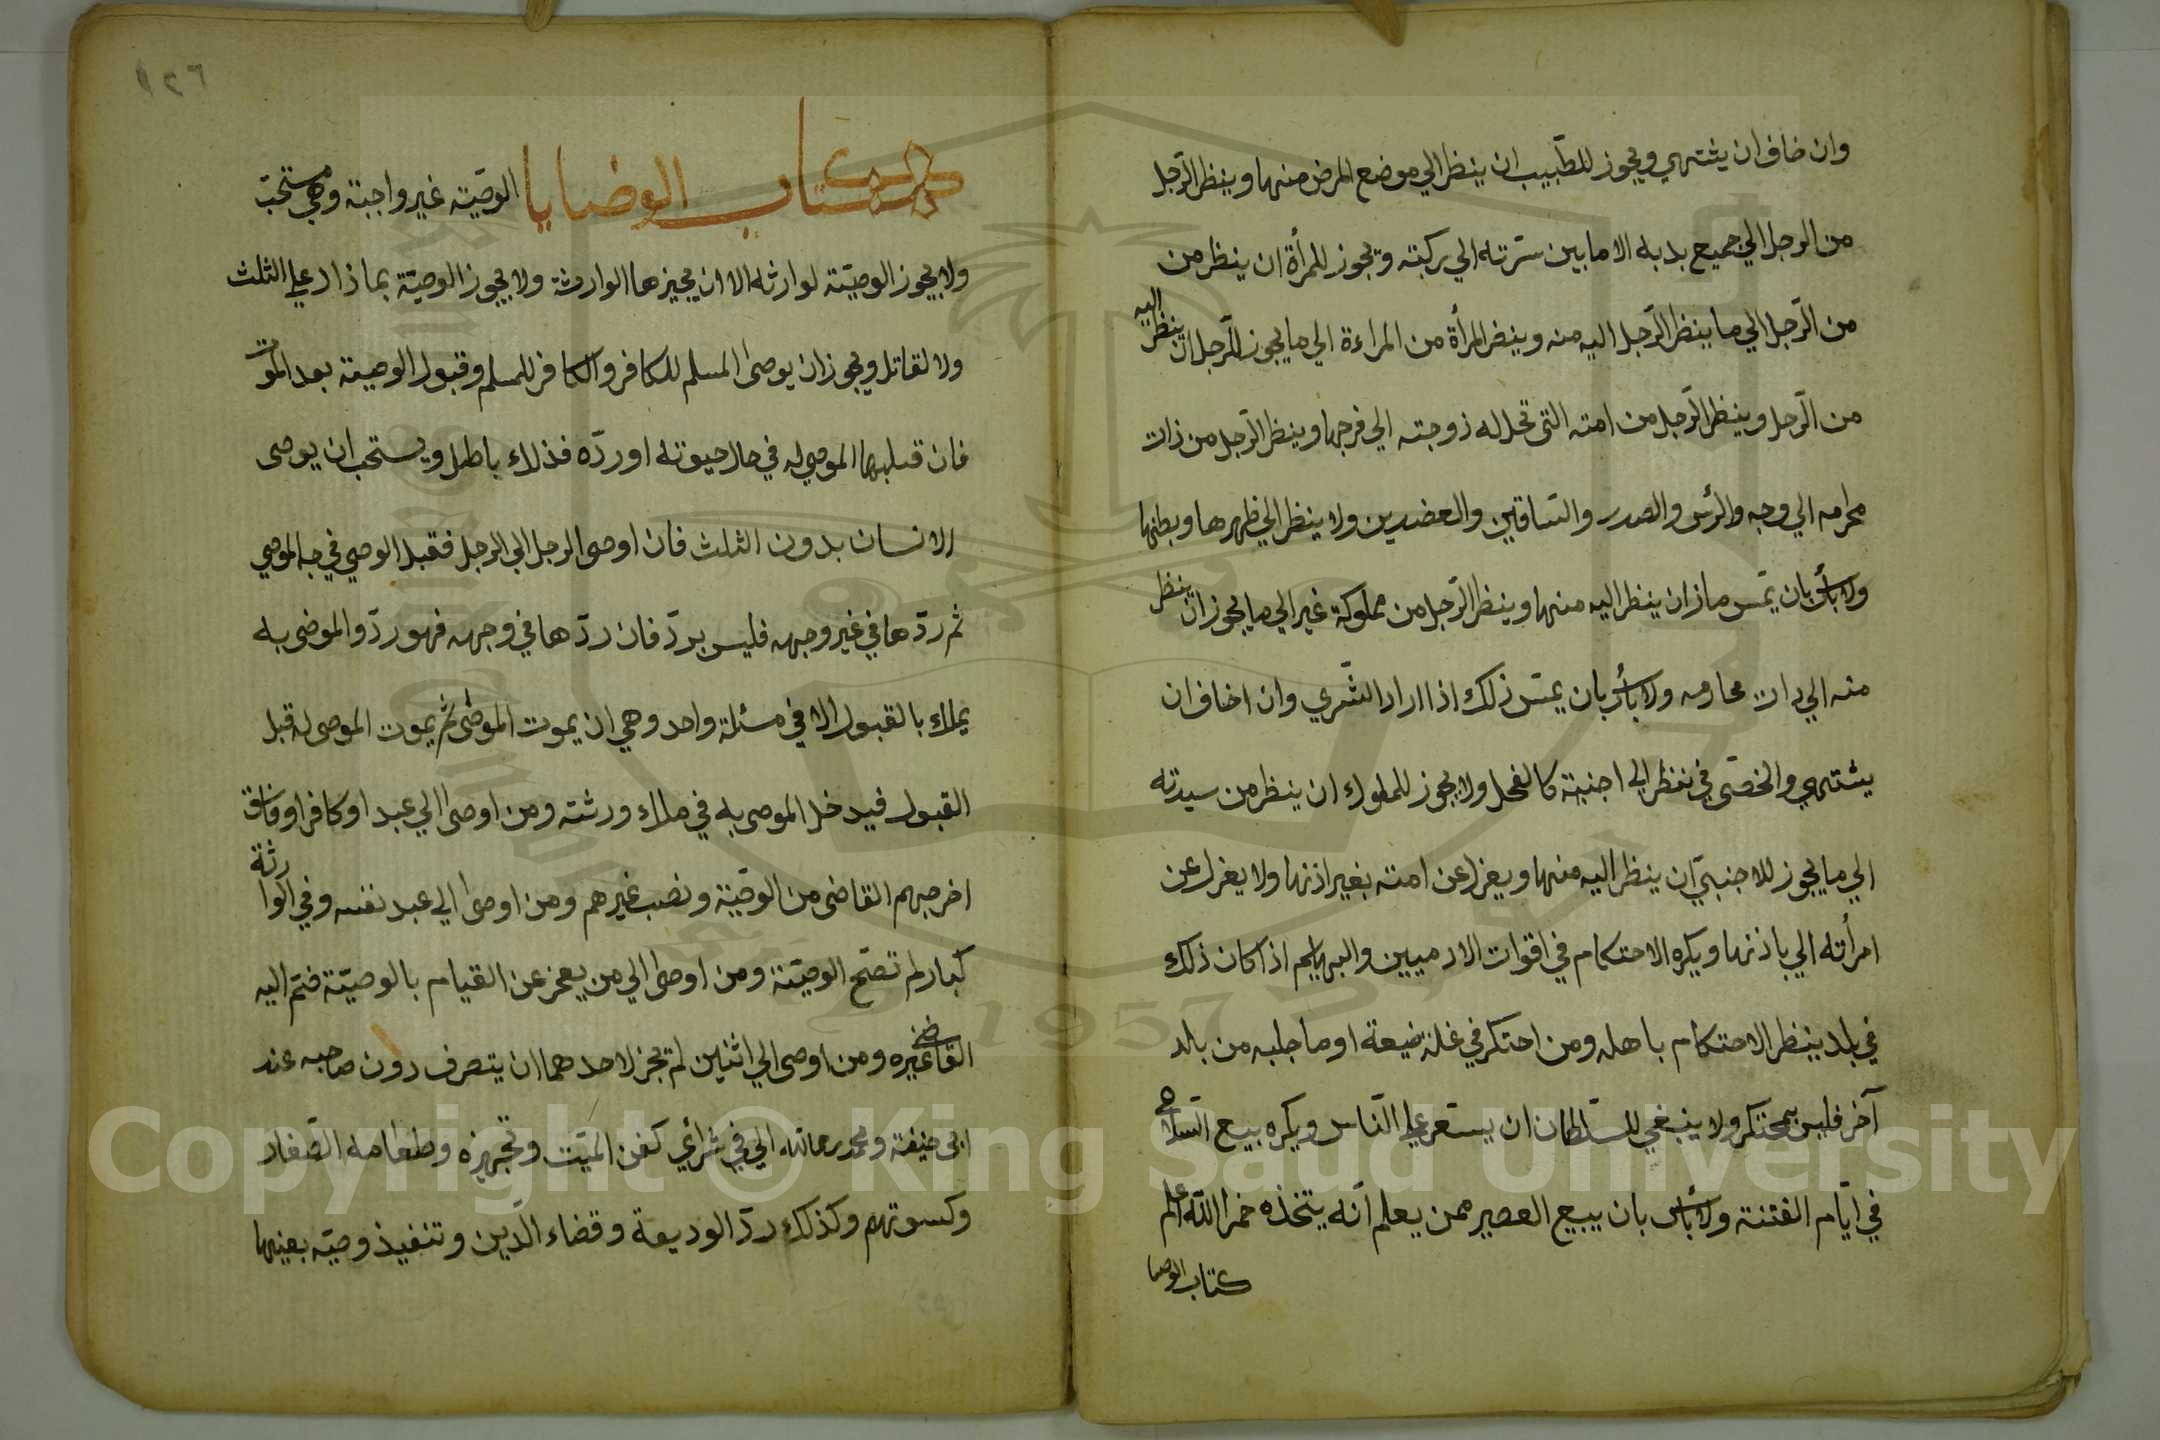 وان خاف ان يشتهي ويجوز للطّبيب ان ينظر الي موضع المرض منها وينظر الرّجل
من الرجل الي جميع بدبه الا ما بين سترته الي ركبته ويجوز للمرأة ان ينظر من
من الرّجل الي ما ينظر الرّجل اليه منه وينضر المرأة من المراءة الي ما يجوز للرّجل ان ينظر اليه
من الرّجل وينظر الرّجل من امته التي تحل له زوجته الي فرجها وينظر الرّجل من ذات
محرامه الي وجه والرئس والصدر والسّاقين والعضدين ولا ينظر الي ظهرها وبطنها
ولا بأس بان يمّس ما زان ينظر اليه منها وينظر الرّجل من مملوكة غير الي ما يجوز ان ينظر
منه الي دات محارمه ولا بأس بان يمّس ذلك اذا اراد الشّري وان اخاف ان
يشتهي والخصّي في نفظر الي اجنبية كالفحل ولا يجوز للملوك ان ينظر من سيدته
الي ما يجوز للاجنبيّ ان ينظر اليه منها ويعزل عن امته بغير اذنها ولا يعزل عن
امرأته الي باذنها ويكره الاحتكام في اقوات الادميين والبهايم اذا كان ذلك
في بلد ينظر الاحتكام باهله ومن احتكر في غلة ضيعة او ما جلبه من بلد
آخر فليس بمحتكر ولا ينبغي للسّلطان ان يسعّر علي النّاس ويكره بيع السّلاح
في ايّام الفتنة ولا بأس بان يبيع العصير ممن يعلم انّه يتخذه خمرا اللّه اعلم
كتاب الوصا
١٢٦
كتاب الوضايا الوصيّة غير واجبة وهي مستحبّ
ولا يجوز الوصيّة لوارثه الا ان يجيزها الوارثة ولا يجوز الوصيّة بماذاد علي الثلث
ولا لقاتل ويجوز ان يوصى المسلم للكافر والكافر للمسلم وقبول الوصية بعد الموت
فان قبلها الموصي له في حال حيوته او ردّه فذلك باطل ويستحب ان يوصى
الانسان بدون الثلث فان اوصى الرجل الي الرجل فقبل الوصي في جه الموصي
ثم ردّها في غير وجهه فليس بردّ فان ردّها في وجهه فهو ردّ والموضى به
يملك بالقبول الا في مسئلة واحد وهي ان يموت الموصى ثم يموت الموصى له قبل
القبول فيدخل الموصى به في ملك ورثته ومن اوصى الي عبد او كافر او فاسق
اخرجهم القاضى من الوصّية ونصب غيرهم ومن اوصى الي عبد نفسه وفي الوارثة
كبار لم تصّح الوصيّة ومن اوصى الي من يعجز عن القيام بالوصيّة ضّم اليه
القاضي غيره ومن اوصى الي اثنين لم يجز لاحدهما ان يتصرف دون صاحبه عند
ابى حنيفة ومحمد رحمالله الي في شرائي كفن الميّت وتجهيزه وطعامه الصّغار
وكسوتهم وكذلك ردّ الوديعة وقضاء الدّين وتنفيذ وصيّه بعنيها
Copyright © King Saud University
1957